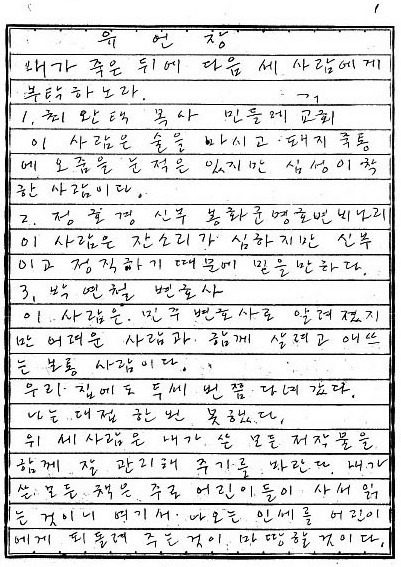 유 언 장
내가 죽은 뒤에 다음 세 사람에게
부탁하노라.
1. 최 완택 목사 민들레 교회
이 사람은 술을 마시고 돼지 죽통
에 오줌을 눈 적은 있지만 심성이 착
한 사람이다.
2. 정 호경 신부 봉화군 명호면 비나리
이 사람은 잔소리가 심하지만 신부
이고 정직하기 때문에 믿을만하다.
3. 박 연철 변호사
이 사람은 민주 변호사로 알려졌지
만 어려운 사람과 함께 살려고 애쓰
는 보통 사람이다.
우리 집에도 두세 번쯤 다녀갔다.
나는 대접 한 번 못했다.
위 세 사람은 내가 쓴 모든 저작물을
함께 잘 관리해 주기를 바란다. 내가
쓴 모든 책은 주로 어린이들이 사서 읽
는 것이니 여기서 나오는 인세를 어린이
에게 되돌려 주는 것이 마땅할 것이다.